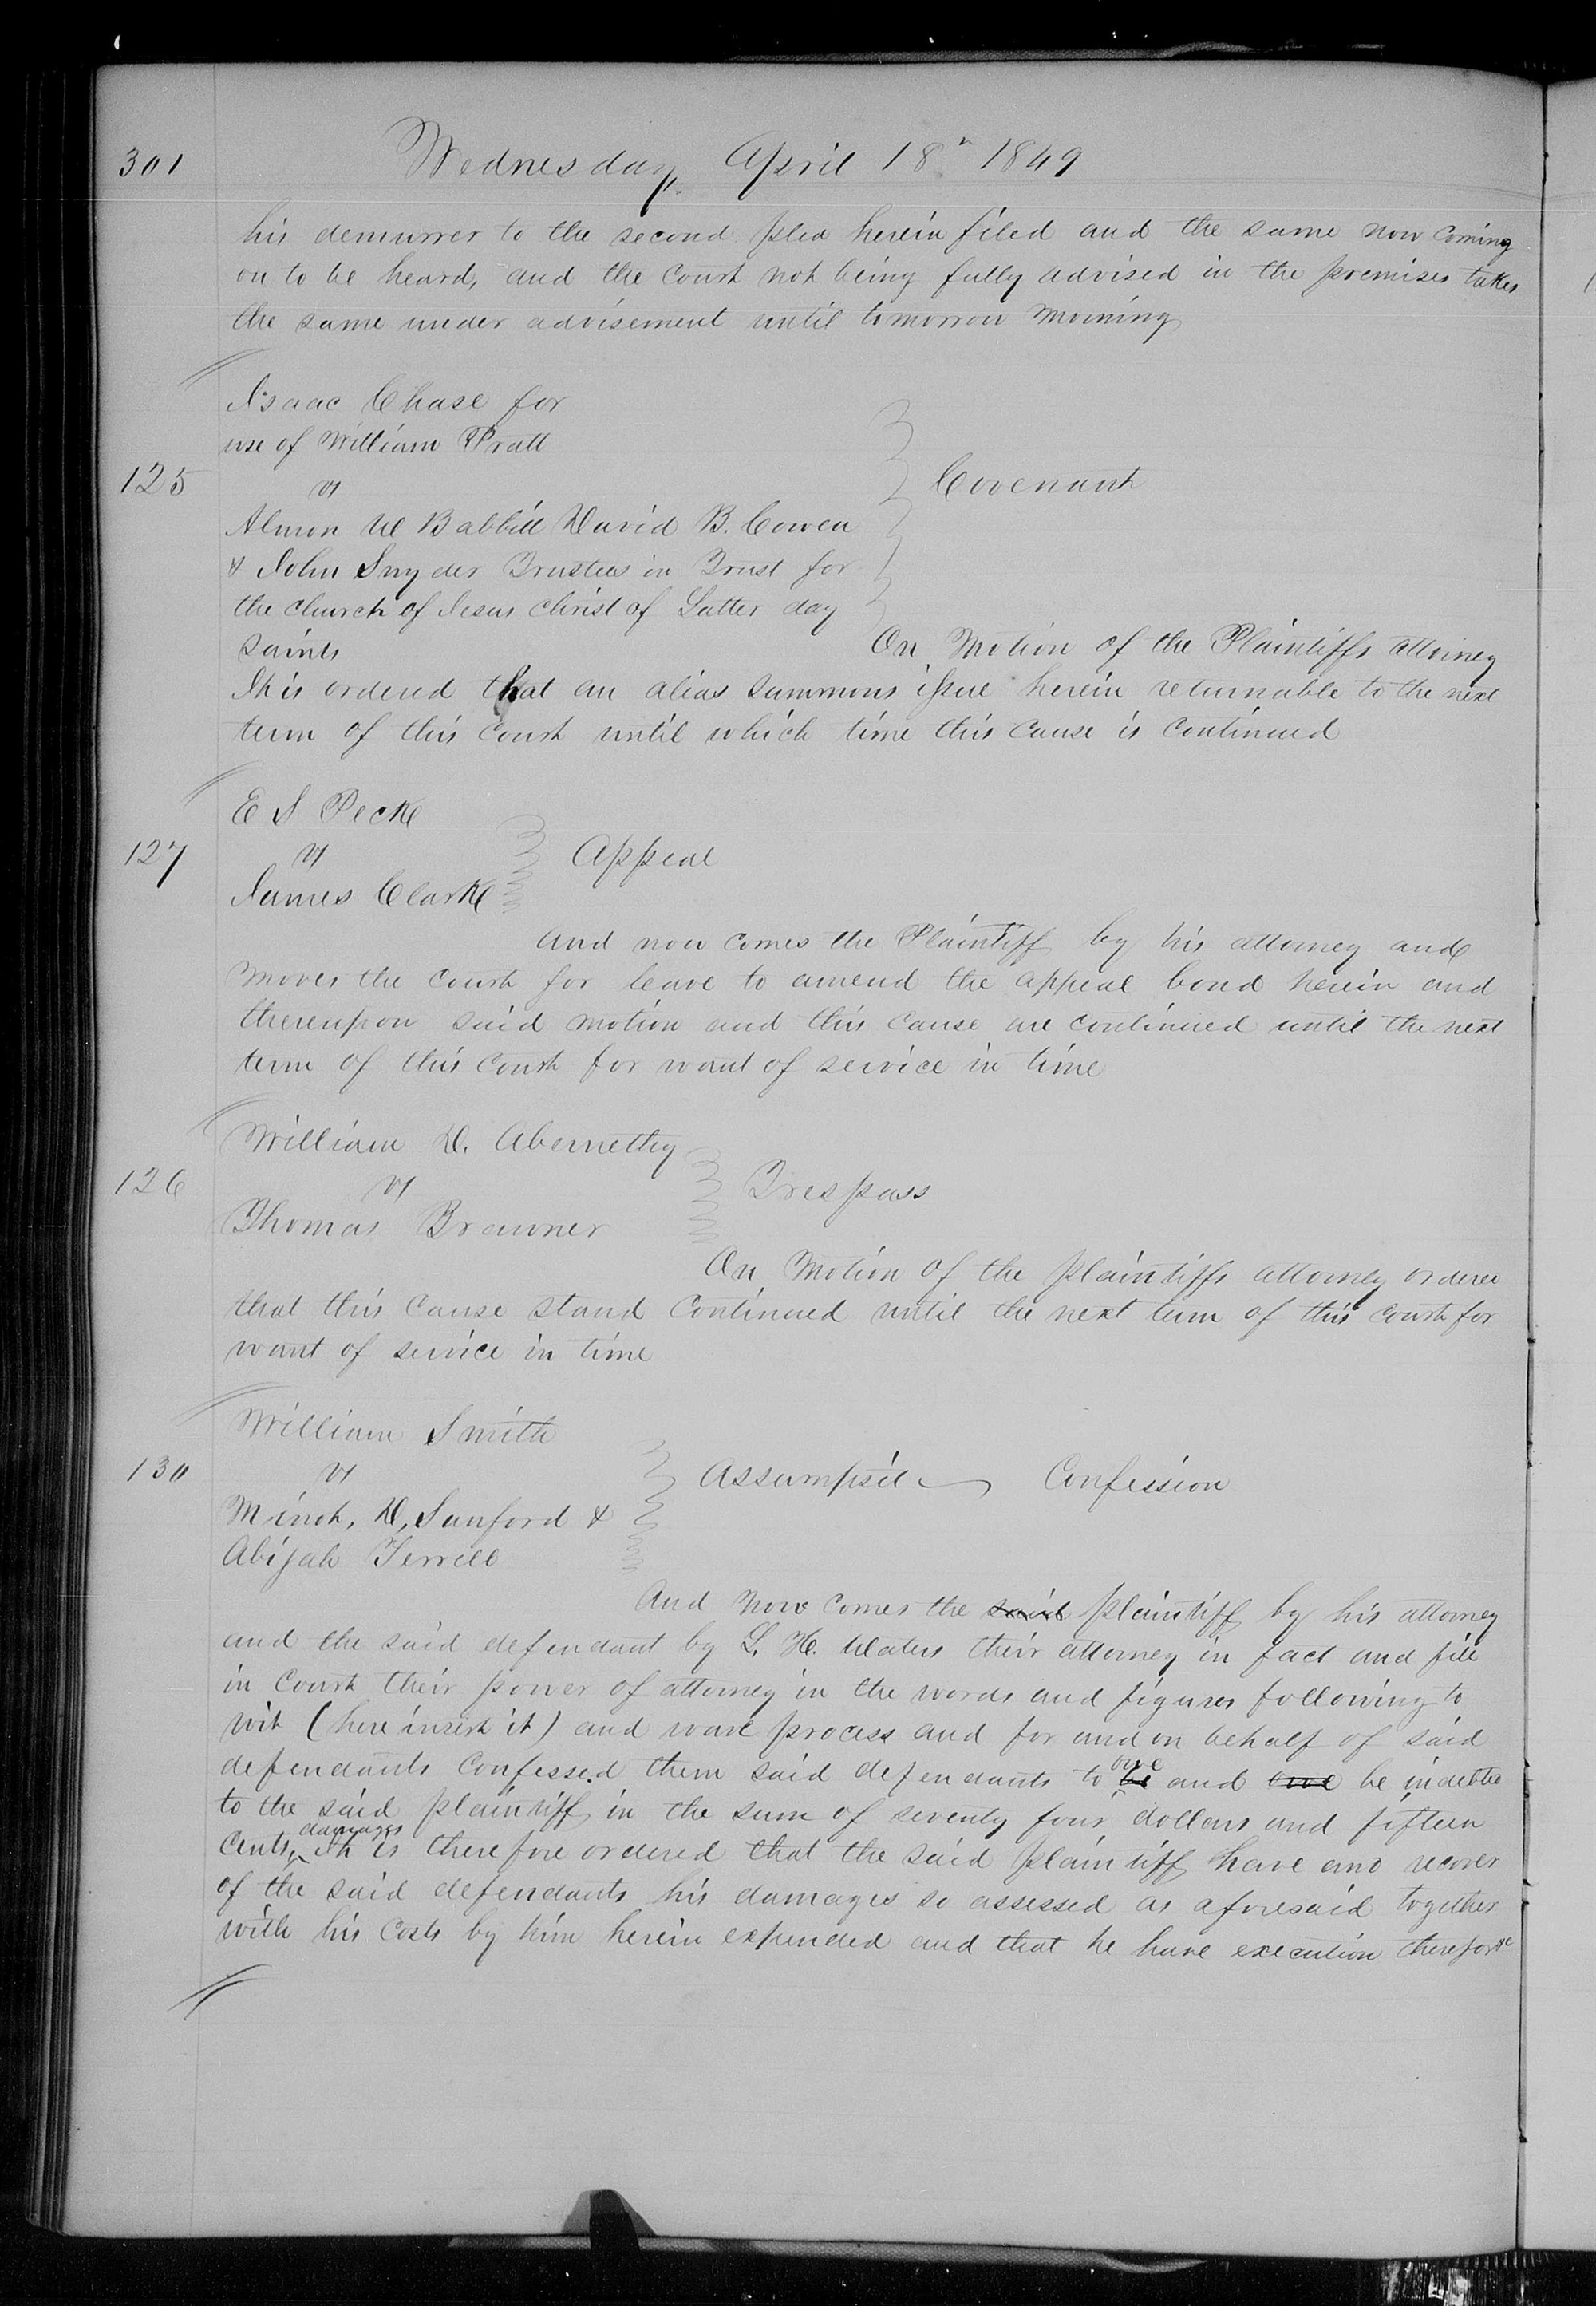 301 Wednesday April 18th 1849
his demurrer to the second plea herein filed and the same now coming
on to be heard, and the court not being fully advised in the premises takes
the same under advisement until tomorrow morning
Isaac Chase for
use of William Pratt
125 vs Covenant
Almon W Babbitt David B. Cowen
& John Snyder Trustees in Trust for
the church of Jesus Christ of Latter day
saints On Motion of the Plaintiffs attorney
It is ordered that an alias summons issue herein returnable to the next
term of this court until which time this cause is continued
E S Peck
127 vs Appeal
James Clark
And now comes the Plaintiff by his attorney and
moves the court for leave to amend the appeal bond herein and
thereupon said motion and this cause are continued until the next
term of this court for want of service in time
William D. Abernethy
126 vs Trespass
Thomas Brawner
On Motion of the plaintiffs attorney ordered
that this cause stand continued until the next term of this court for
want of service in time
William Smith
130 vs Assumpsit Confession
D, Sanford &
Abijah Terrill
And now comes the said plaintiff by his attorney
and the said defendant by L. H. Waters their attorney in fact and file
in Court their power of attorney in the words and figures following to
wit (here insert it) and wave process and for and on behalf of said
defendants confessed them said defendants to be owe and owe be indebted
to the said plaintiff in the sum of seventy four dollars and fifteen
cents, damages It is therefore ordered that the said plaintiff have and recover
of the said defendants his damages so assessed as aforesaid together
with his costs by him herein expended and that he have execution therefor &c